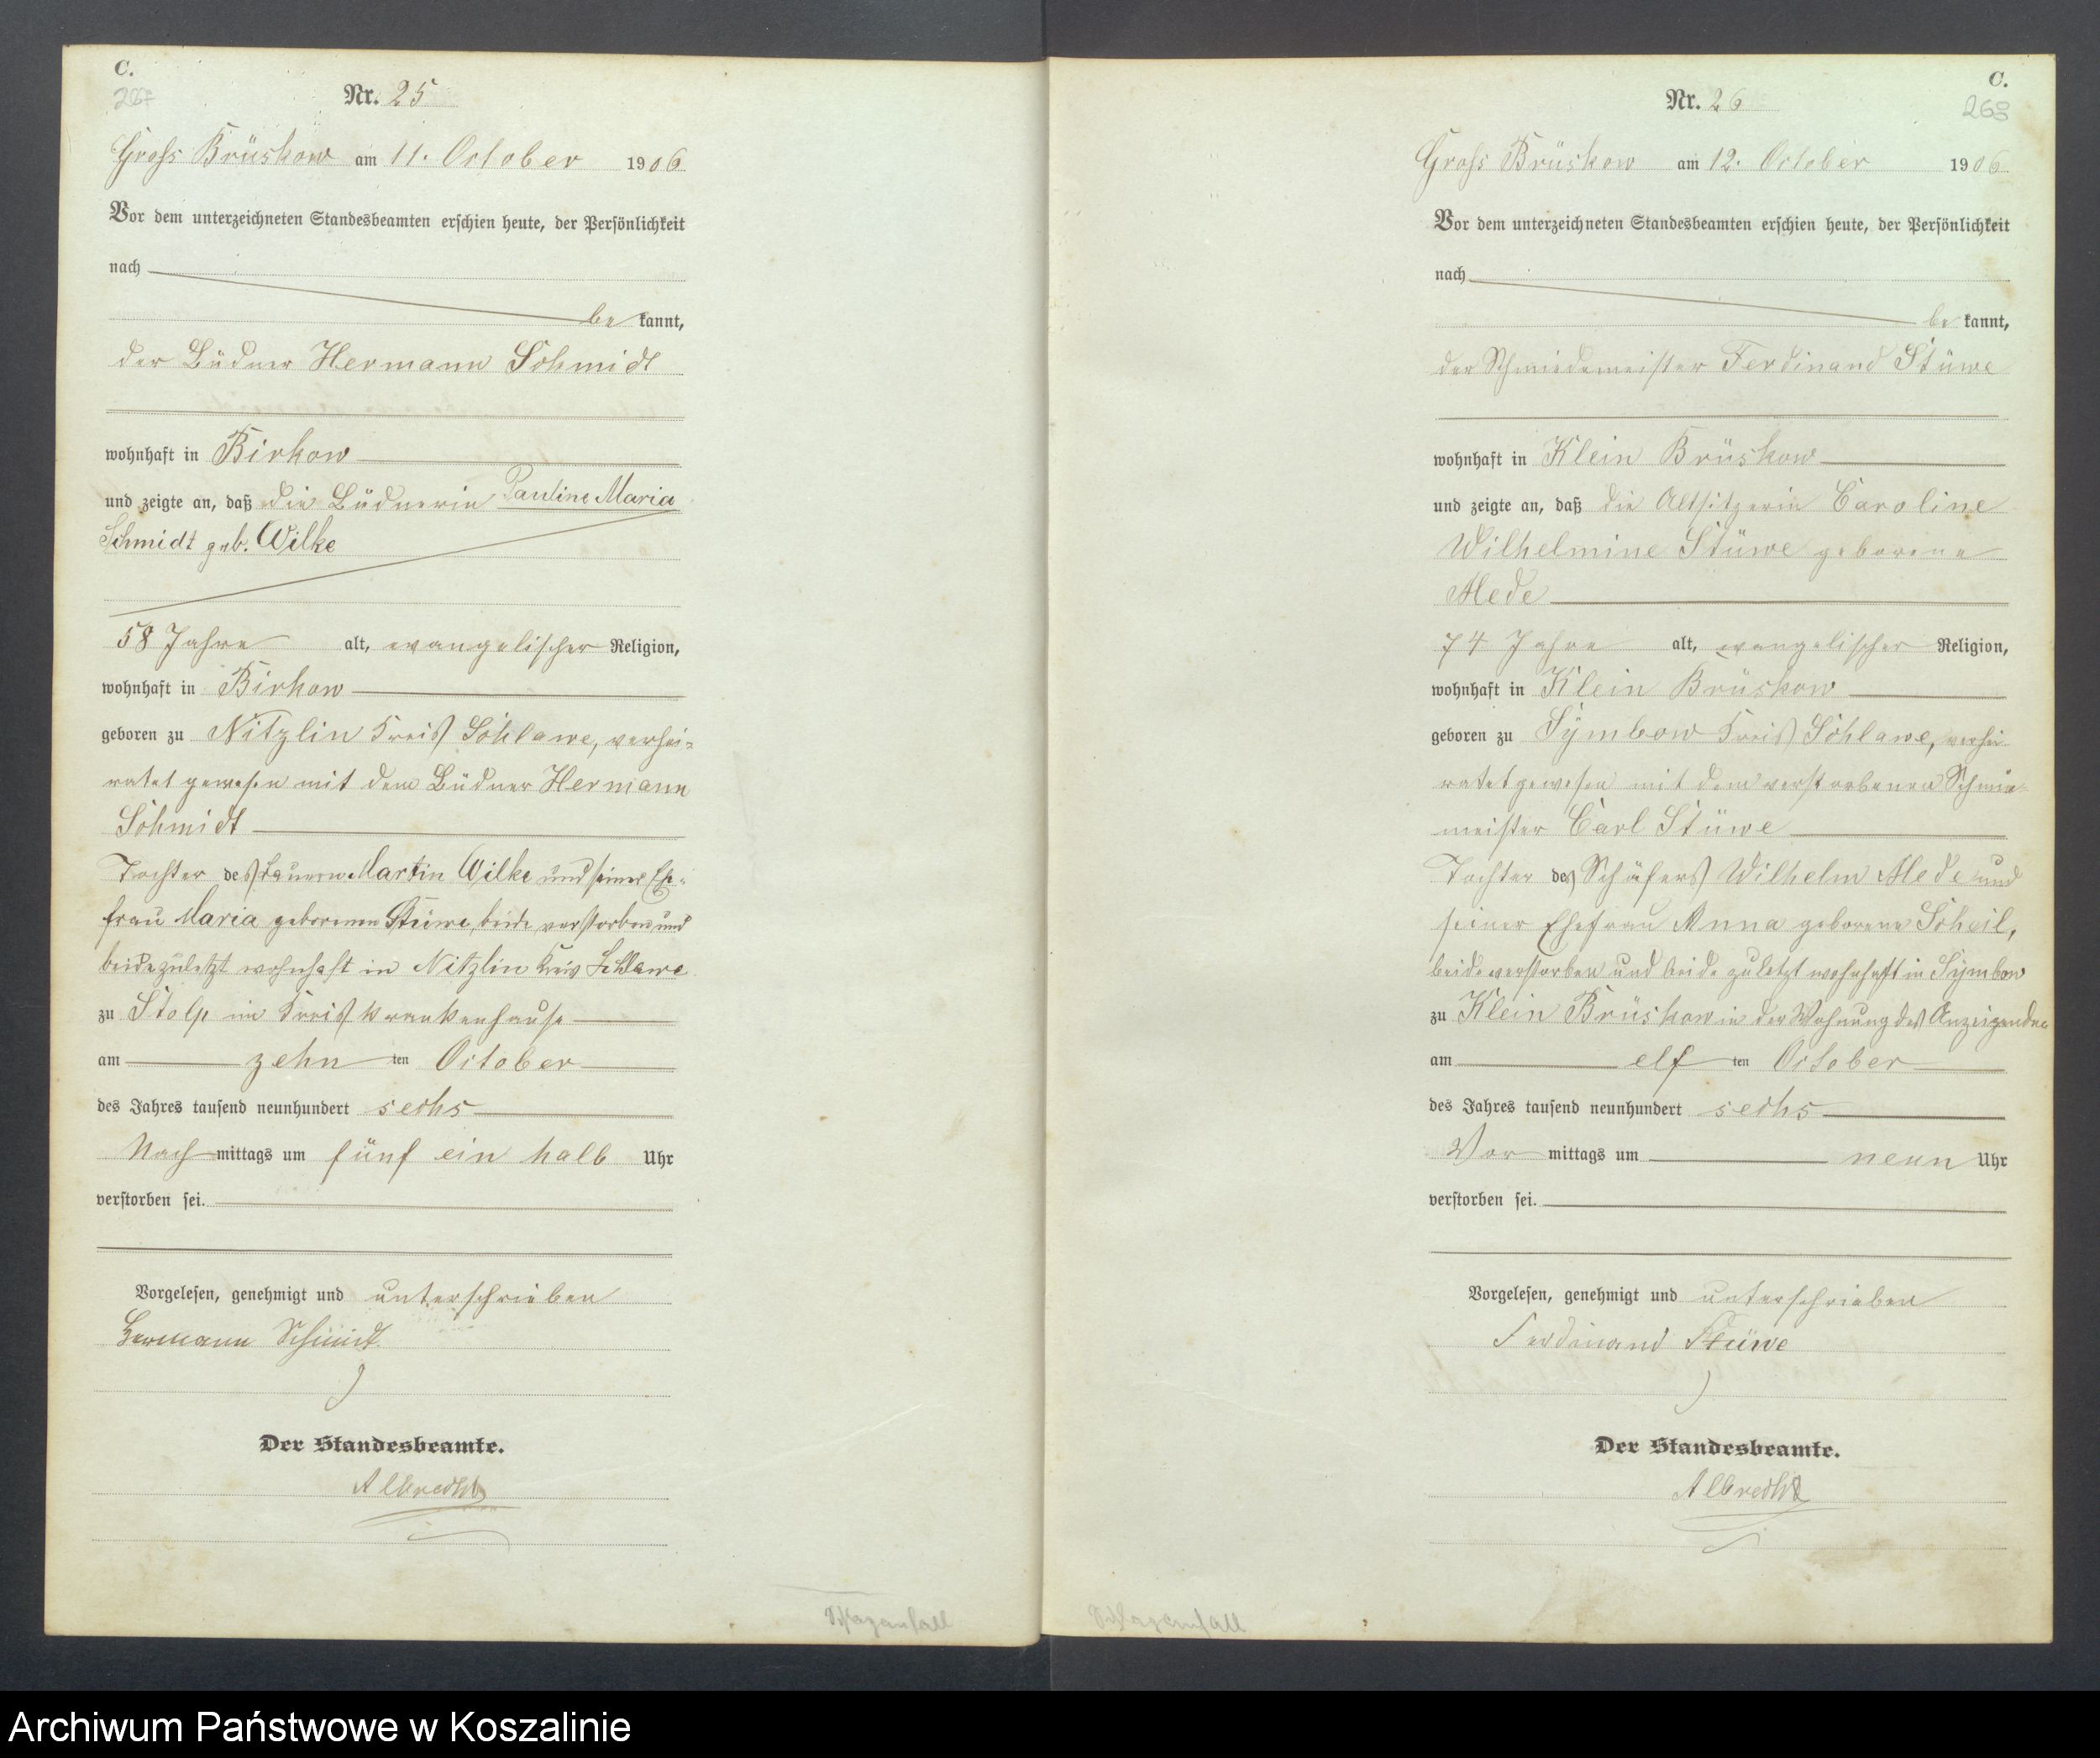 C.
Nr. 25
Groß Brüskow am 11. October 1906
Vor dem unterzeichneten Standesbeamten erschien heute, der Persönlichkeit
nach
be kannt,
der Büdner Hermann Schmidt
wohnhaft in Birkow
und zeigte an, daß die Büdnerin Pauline Maria
Schmidt geb. Wilke
58 Jahre alt, evangelischer Religion,
wohnhaft in Birkow
geboren zu Nitzlin Kreis Schlawe, verhei-
ratet gewesen mit dem Büdner Hermann
Schmidt
Tochter des Bauern Martin Wilke und seiner Ehe-
frau Maria geborenen Stüwe, beide verstorben und
beide zuletzt wohnhaft in Nitzlin Kreis Schlawe
zu Stolp im Kreiskrankenhause
am zehn ten October
des Jahres tausend neunhundert sechs
Nach mittags um fünf ein halb Uhr
verstorben sei.
Vorgelesen, genehmigt und unterschrieben
Hermann Schmidt
Der Standesbeamte.
Albrecht
Schlaganfall
C.
268
Nr. 26
Groß Brüskow am 12. October 1906
Vor dem unterzeichneten Standesbeamten erschien heute, der Persönlichkeit
nach
be kannt,
der Schmiedemeister Ferdinand Stüwe
wohnhaft in Klein Brüskow
und zeigte an, daß die Altsitzerin Caroline
Wilhelmine Stüwe geborene
Mede
74 Jahre alt, evangelischer Religion,
wohnhaft in Klein Brüskow
geboren zu Symbow Kreis Schlawe, verhei-
ratet gewesen mit dem verstorbenen Schmie-
meister Carl Stüwe
Tochter des Schäfers Wilhelm Mede und
seiner Ehefrau Anna geborene Scheil,
beide verstorben und beide zuletzt wohnhaft in Symbow
zu Klein Brüskow in der Wohnung des Anzeigenden
am elf ten October
des Jahres tausend neunhundert sechs
Vor mittags um neun Uhr
verstorben sei.
Vorgelesen, genehmigt und unterschrieben
Ferdinand Stüwe
Der Standesbeamte.
Albrecht
Schlaganfall
Archiwum Państwowe w Koszalinie